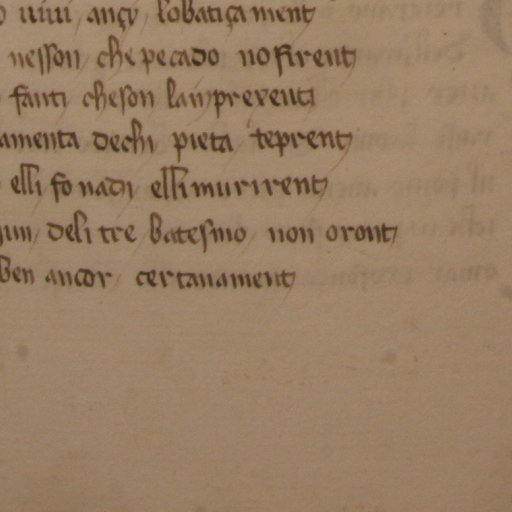 uiui ançi lobatiçament
nesson che pecado no firent
fanti che son lainprexent
amenta dechi pieta te prent
elli fo nadi elli murirent
un deli tre batesmo non oront
ben ancor certanament